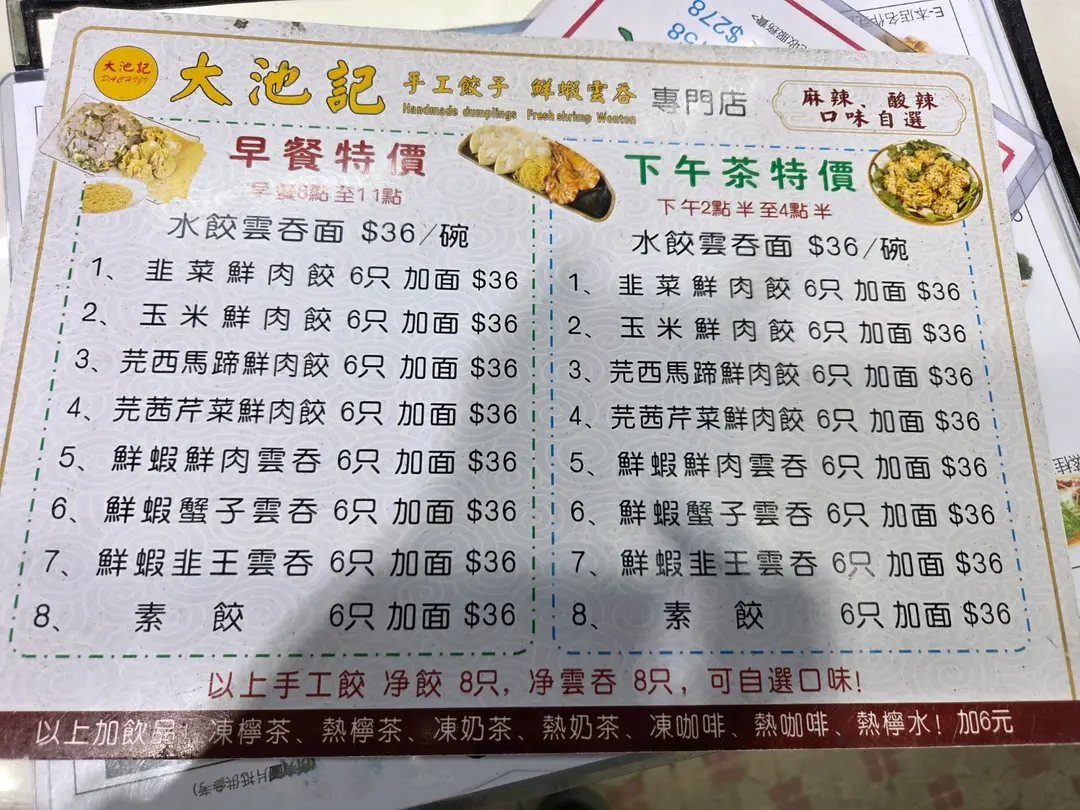 大池記
DACHIGI
大池記
手工餃子 鮮蝦雲吞
Handmade dumplings Fresh shrimp Wonton
專門店
麻辣、酸辣
口味自選
早餐特價
早餐6點至11點
水餃雲吞面 $36/碗
1、韭菜鮮肉餃 6只 加面 $36
2、玉米鮮肉餃 6只 加面 $36
3、芫西馬蹄鮮肉餃 6只 加面 $36
4、芫茜芹菜鮮肉餃 6只 加面 $36
5、鮮蝦鮮肉雲吞 6只 加面 $36
6、鮮蝦蟹子雲吞 6只 加面 $36
7、鮮蝦韭王雲吞 6只 加面 $36
8、素餃 6只 加面 $36
下午茶特價
下午2點半至4點半
水餃雲吞面 $36/碗
1、韭菜鮮肉餃 6只 加面 $36
2、玉米鮮肉餃 6只 加面 $36
3、芫西馬蹄鮮肉餃 6只 加面 $36
4、芫茜芹菜鮮肉餃 6只 加面 $36
5、鮮蝦鮮肉雲吞 6只 加面 $36
6、鮮蝦蟹子雲吞 6只 加面 $36
7、鮮蝦韭王雲吞 6只 加面 $36
8、素餃 6只 加面 $36
以上手工餃 净餃 8只, 净雲吞 8只, 可自選口味!
以上加飲品: 凍檸茶、熱檸茶、凍奶茶、熱奶茶、凍咖啡、熱咖啡、熱檸水! 加6元
$278